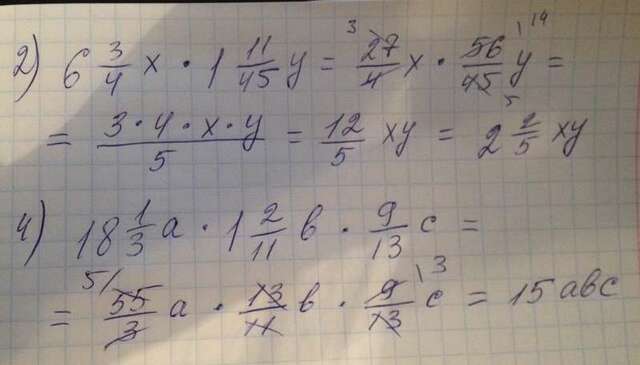 2) 6 3/4 x · 1 11/45 y = 27/4 x · 56/45 y =
= 3·4·x·y/5 = 12/5 xy = 2 2/5 xy
4) 18 1/3 a · 1 2/11 b · 9/13 c =
= 55/3 a · 13/11 b · 9/13 c = 15abc